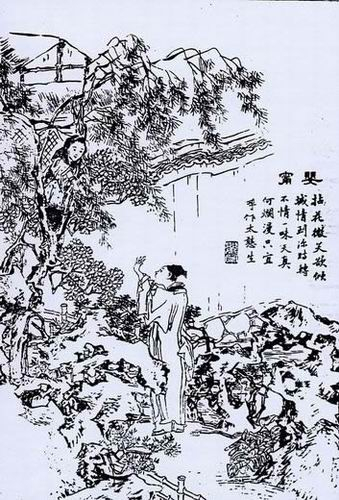 嬰甯
拈花微笑欲傾
城情到深時轉
不情一味天真
何爛漫只宜
作太憨生